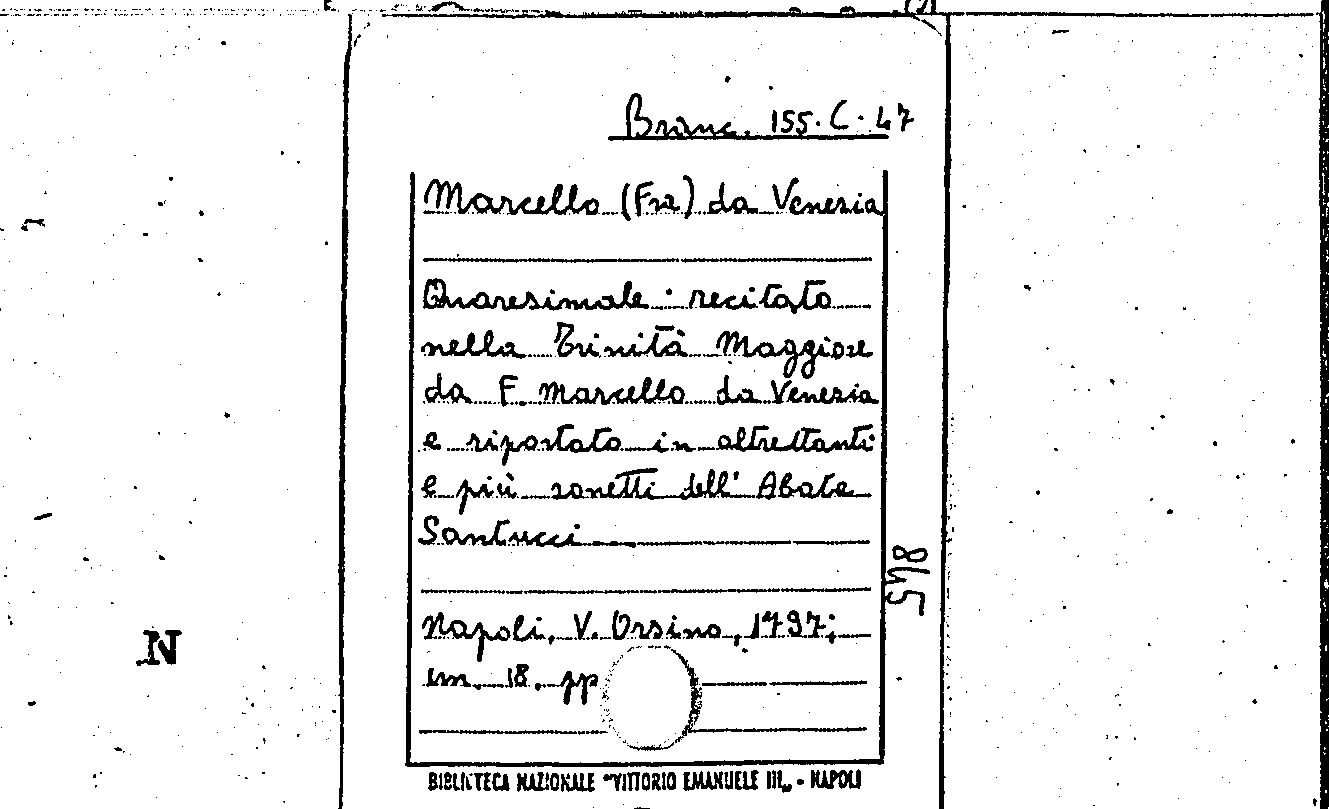 Branc. 155. C. 47
Marcello (Fra) da Venezia
Quaresimale: recitato
nella Trinità Maggiore
da F. Marcello da Venezia
e riportato in altrettanti
e più sonetti dell' Abate
Santucci
845
Napoli, V. Orsino, 1797;
in 18. pp
N
BIBLIOTECA NAZIONALE "VITTORIO EMANUELE III„ - NAPOLI